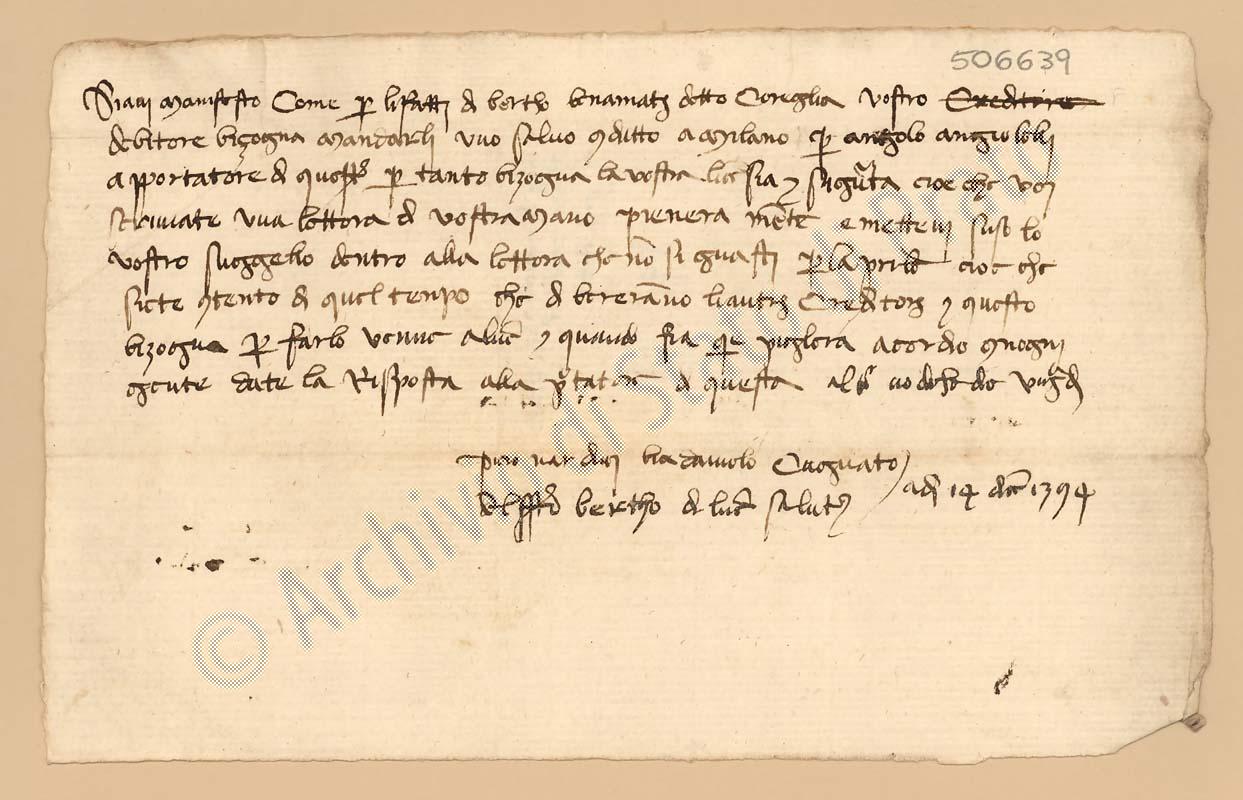 506639
Siavi manifesto Come p li fatti di bertho benamati detto Coreglia vostro Creditore
debitore bizogna mandarli uno salvo 9ditto a Milano p angiolo angiolelli
apportatore di questa p tanto bizogna la vostra licēsia 7 sugurta cioe che voi
scriviate una lettora di vostra mano pienera mēte e mettevi suso lo
vostro suggello dentro alla lettora che nō si guasti p la prile cioe che
siete 9tento di quel tenpo che diliberranno li autri Creditori 7 questo
bizogna p farlo venire a luc 7 quando fia que piglera acordio 9 ogni
gente date la Risposta alla portatore di questa
Cognato
bertho di luca salute adi 14 dic 1394
© Archivio di Stato di Prato